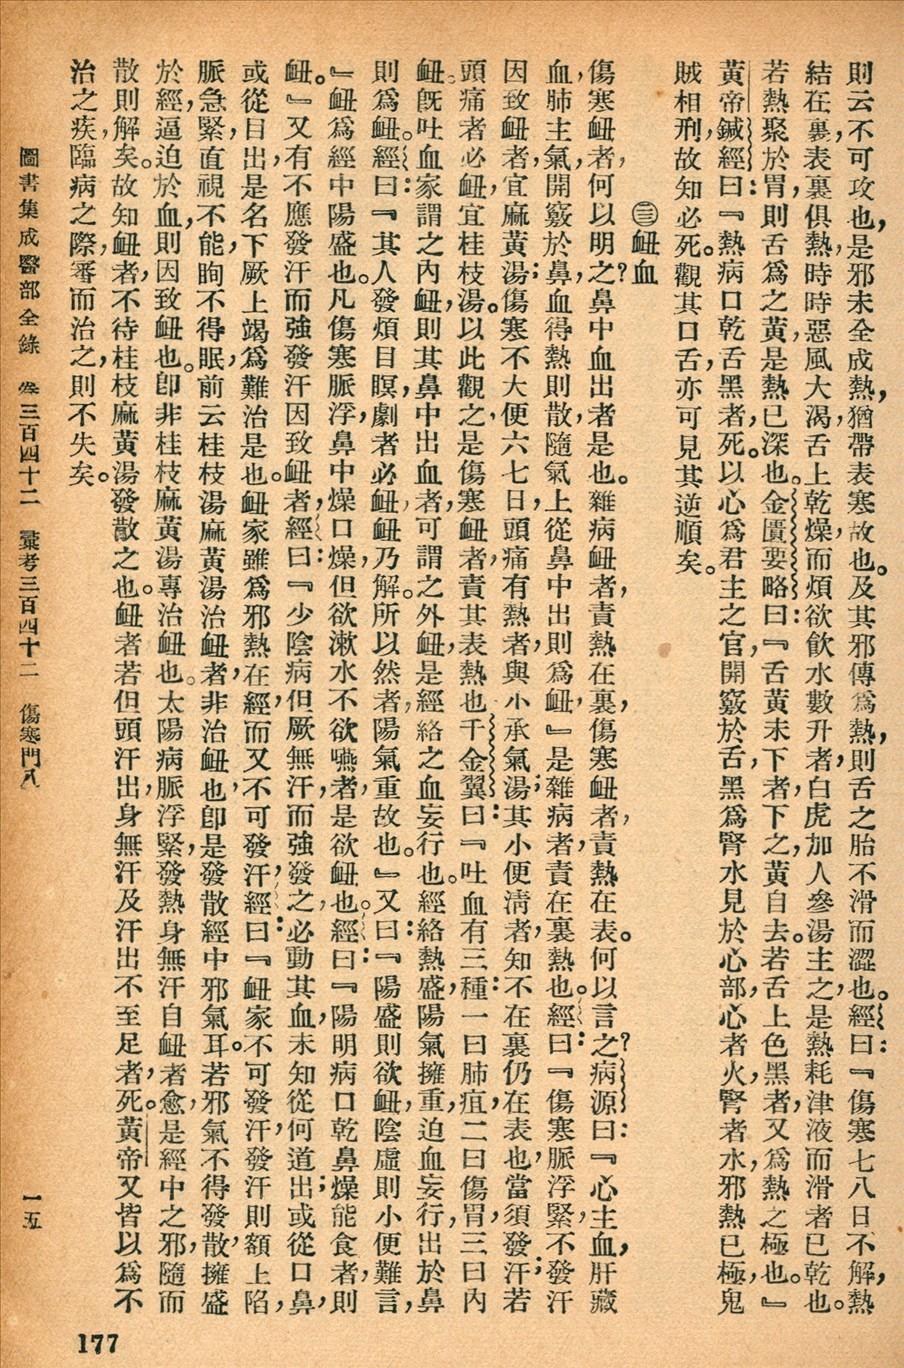 則云不可攻也，是邪未全成熱，猶帶表寒故也。及其邪傳爲熱，則舌之胎不滑而澀也。經曰：『傷寒七八日不解，熱
結在裏，表裏俱熱，時時惡風大渴，舌上乾燥而煩，欲飮水數升者，白虎加人參湯主之，是熱耗津液而滑者已乾也。
若熱聚於胃，則舌爲之黃，是熱已深也。金匱要略曰：『舌黃未下者，下之，黃自去。若舌上色黑者，又爲熱之極也。』
黃帝鍼經曰：『熱病口乾，舌黑者，死。以心爲君主之官，開竅於舌，黑爲腎水見於心部，心者火，腎者水，邪熱已極，鬼
賊相刑，故知必死。觀其口舌，亦可見其逆順矣。
㊂衄血
傷寒衄者，何以明之？鼻中血出者是也。雜病衄者，責熱在裏，傷寒衄者，責熱在表。何以言之？病源曰：『心主血，肝藏
血，肺主氣，開竅於鼻，血得熱則散，隨氣上從鼻中出則爲衄，』是雜病者，責在裏熱也。經曰：『傷寒脈浮緊，不發汗
因致衄者，宜麻黃湯；傷寒不大便六七日，頭痛有熱者，與小承氣湯；其小便淸者，知不在裏仍在表也，當須發汗；若
頭痛者必衄，宜桂枝湯。以此觀之，是傷寒衄者，責其表熱也千金翼曰：『吐血有三種：一曰肺疽，二曰傷胃，三曰內
衄。旣吐血家謂之內衄，則其鼻中出血者，可謂之外衄，是經絡之血妄行也。經絡熱盛，陽氣擁重，迫血妄行，出於鼻
則爲衄。經曰：『其人發煩目瞑，劇者必衄，衄乃解。所以然者，陽氣重故也。』又曰：『陽盛則欲衄，陰虛則小便難言，
』衄爲經中陽盛也。凡傷寒脈浮，鼻中燥，口燥，但欲漱水不欲嚥者，是欲衄也。經曰：『陽明病口乾鼻燥能食者，則
衄。』又有不應發汗而強發汗因致衄者，經曰：『少陰病但厥無汗，而強發之，必動其血，未知從何道出；或從口鼻，
或從目出，是名下厥上竭，爲難治是也。衄家雖爲邪熱在經，而又不可發汗，經曰：『衄家不可發汗，發汗則額上陷，
脈急緊，直視，不能眴，不得眠，前云桂枝湯麻黃湯治衄者，非治衄也，卽是發散經中邪氣耳。若邪氣不得發散，擁盛
於經，逼迫於血，則因致衄也。卽非桂枝麻黃湯專治衄也。太陽病脈浮緊，發熱身無汗自衄者愈，是經中之邪，隨而
散則解矣。故知衄者，不待桂枝麻黃湯發散之也。衄者若但頭汗出，身無汗及汗出不至足者，死。黃帝又皆以爲不
治之疾，臨病之際，審而治之，則不失矣。
圖書集成醫部全錄　卷三百四十二　彙考三百四十二　傷寒門八
一五
177